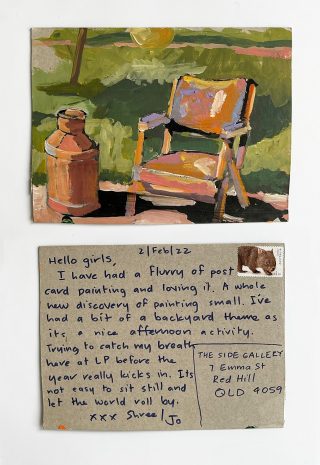 2/Feb/22
Hello girls,
I have had a flurry of post
card painting and loving it. A whole
new discovery of painting small. I've
had a bit of a backyard theme as
its a nice afternoon activity.
Trying to catch my breath
here at LP before the
year really kicks in. Its
not easy to sit still and
let the world roll by.
xxx Shree/
Jo
THE SIDE GALLERY
7 Emma St
Red Hill
QLD 4059